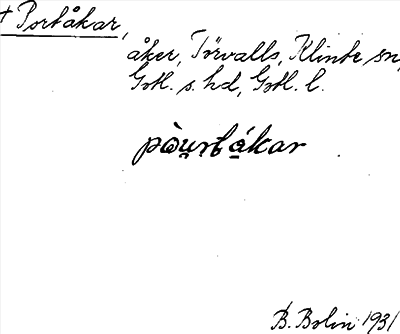 † Portåkar,
åker, Törvalls, Klinte sn,
Gotl. s. hd, Gotl. l.
pòu̯rtákar
B. Bolin 1931